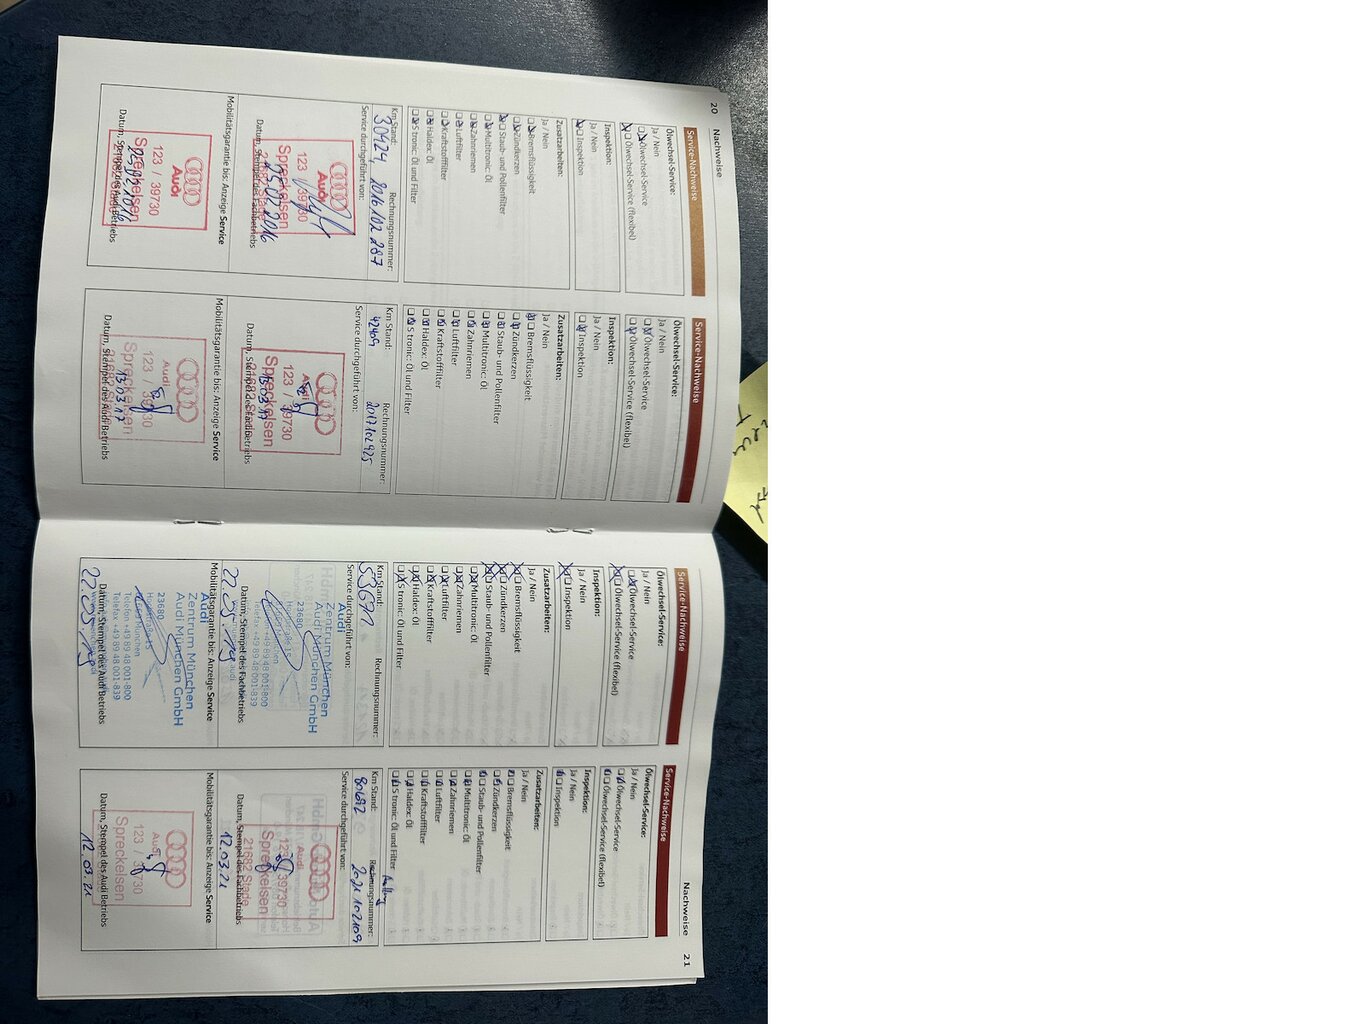 20 Nachweise
Service-Nachweise
Ölwechsel-Service:
Ja / Nein
Ölwechsel-Service
Ölwechsel-Service (flexibel)
Inspektion:
Ja / Nein
Inspektion
Zusatzarbeiten:
Ja / Nein
Bremsflüssigkeit
Zündkerzen
Staub- und Pollenfilter
Multitronic: Öl
Zahnriemen
Luftfilter
Kraftstofffilter
Haldex: Öl
S tronic: Öl und Filter
Km Stand: Rechnungsnummer:
30424 2016 102 287
Service durchgeführt von:
Audi
123 / 39730
Spreckelsen
05.02.2016
Datum, Stempel des Fachbetriebs
Mobilitätsgarantie bis: Anzeige Service
Audi
123 / 39730
Spreckelsen
Datum, Stempel des Audi Betriebs
Service-Nachweise
Ölwechsel-Service:
Ja / Nein
Ölwechsel-Service
Ölwechsel-Service (flexibel)
Inspektion:
Ja / Nein
Inspektion
Zusatzarbeiten:
Ja / Nein
Bremsflüssigkeit
Zündkerzen
Staub- und Pollenfilter
Multitronic: Öl
Zahnriemen
Luftfilter
Kraftstofffilter
Haldex: Öl
S tronic: Öl und Filter
Km Stand: Rechnungsnummer:
42409 2017102925
Service durchgeführt von:
Audi
123 / 39730
Spreckelsen
13.03.17
Datum, Stempel des Fachbetriebs
Mobilitätsgarantie bis: Anzeige Service
Audi
123 / 39730
Spreckelsen
13.03.17
Datum, Stempel des Audi Betriebs
Service-Nachweise
Ölwechsel-Service:
Ja / Nein
Ölwechsel-Service
Ölwechsel-Service (flexibel)
Inspektion:
Ja / Nein
Inspektion
Zusatzarbeiten:
Ja / Nein
Bremsflüssigkeit
Zündkerzen
Staub- und Pollenfilter
Multitronic: Öl
Zahnriemen
Luftfilter
Kraftstofffilter
Haldex: Öl
S tronic: Öl und Filter
Km Stand: Rechnungsnummer:
Service durchgeführt von:
Audi
Zentrum München
Audi München GmbH
23680
Telefon +49 89 48 001-800
Telefax +49 89 48 001-839
22.05.
Datum, Stempel des Fachbetriebs
Mobilitätsgarantie bis: Anzeige Service
Audi
Zentrum München
Audi München GmbH
23680
München
Telefon +49 89 48 001-800
Telefax +49 89 48 001-839
22.05.
Datum, Stempel des Audi Betriebs
Nachweise 21
Service-Nachweise
Ölwechsel-Service:
Ja / Nein
Ölwechsel-Service
Ölwechsel-Service (flexibel)
Inspektion:
Ja / Nein
Inspektion
Zusatzarbeiten:
Ja / Nein
Bremsflüssigkeit
Zündkerzen
Staub- und Pollenfilter
Multitronic: Öl
Zahnriemen
Luftfilter
Kraftstofffilter
Haldex: Öl
S tronic: Öl und Filter
Km Stand: Rechnungsnummer:
80692 2021 102109
Service durchgeführt von:
123 / 39730
Spreckelsen
21682 Stade
12.03.21
Datum, Stempel des Fachbetriebs
Mobilitätsgarantie bis: Anzeige Service
Audi
123 / 39730
Spreckelsen
12.03.21
Datum, Stempel des Audi Betriebs